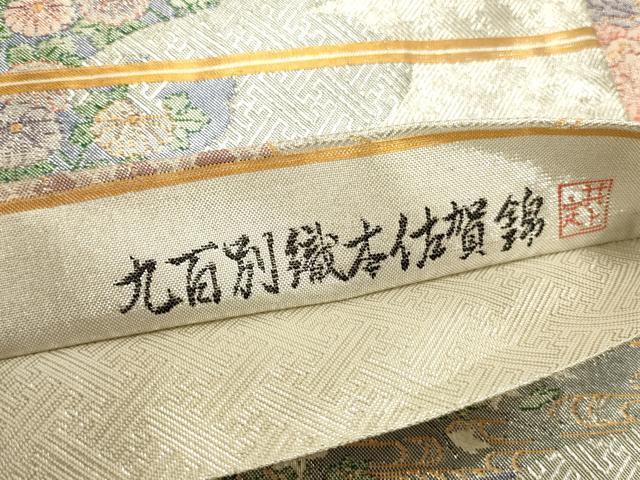 九百別織本佐賀錦